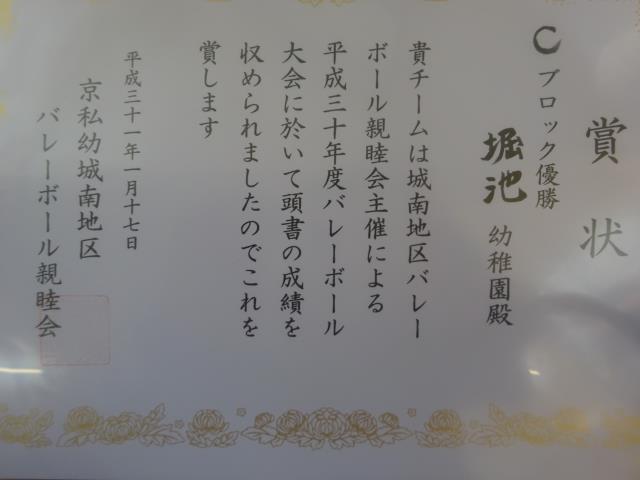 賞状
Cブロック優勝
堀池 幼稚園殿
貴チームは城南地区バレー
ボール親睦会主催による
平成三十年度バレーボール
大会に於いて頭書の成績を
収められましたのでこれを
賞します
平成三十一年一月十七日
京私幼城南地区
バレーボール親睦会